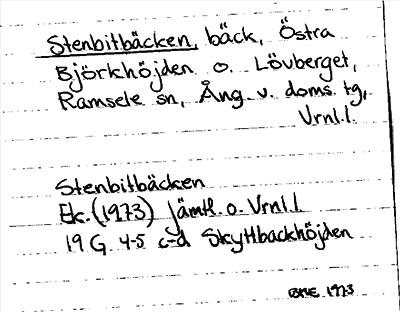 Stenbitbäcken, bäck, Östra
Björkhöjden o. Lövberget,
Ramsele sn, Ång. v. doms. tg,
Vrnl.l.
Stenbitbäcken
Ek. (1973) Jämtl. o. Vrnl.l
19 G 4-5 c-d Skyttbackhöjden
1973